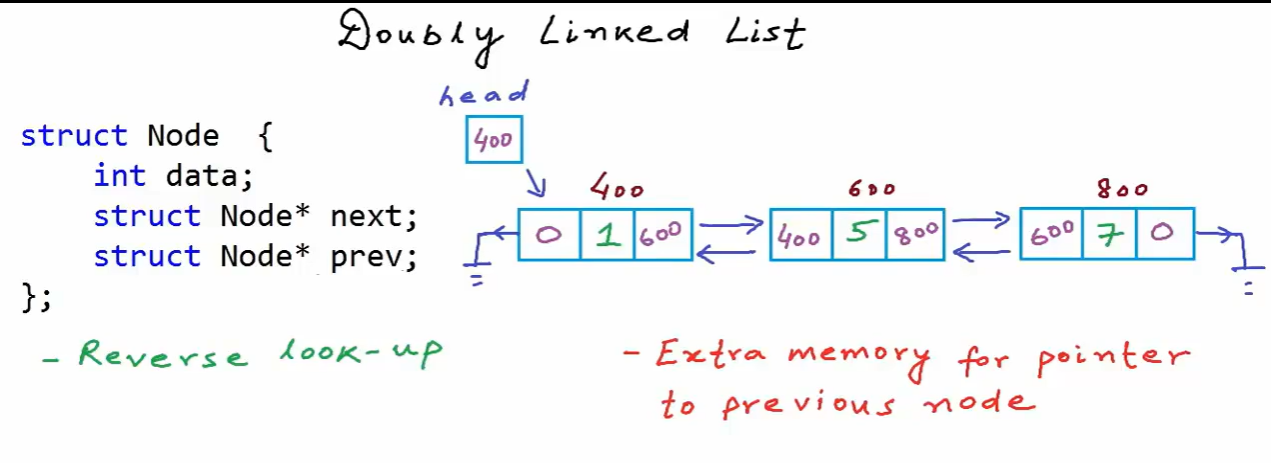 Doubly Linked List
head
400
struct Node {
int data;
struct Node* next;
struct Node* prev;
};
400 600 800
0 1 600 400 5 800 600 7 0
- Reverse look-up
- Extra memory for pointer
to previous node